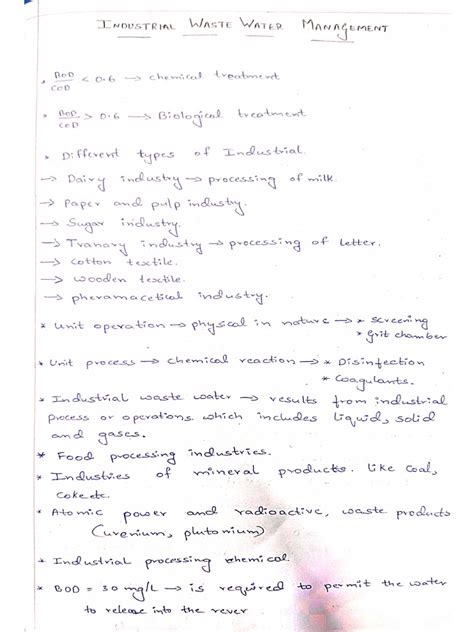 INDUSTRIAL WASTE WATER MANAGEMENT
* BOD/COD < 0.6 → chemical treatment
* BOD/COD > 0.6 → Biological treatment
* Different types of Industrial.
→ Dairy industry → processing of milk.
→ Paper and pulp industry.
→ Sugar industry.
→ Tranary industry → processing of letter.
→ cotton textile.
→ wooden textile.
→ pheramacetical industry.
* Unit operation → physical in nature → * screening
* Grit chamber
* Unit process → chemical reaction → * Disinfection
* Coagulants.
* Industrial waste water → results from industrial
process or operations which includes liquid, solid
and gases.
* Food processing industries.
* Industries of mineral products. like coal,
coke etc.
* Atomic power and radioactive, waste products
(urenium, plutonium)
* Industrial processing chemical.
* BOD = 30 mg/L → is required to permit the water
to release into the rever